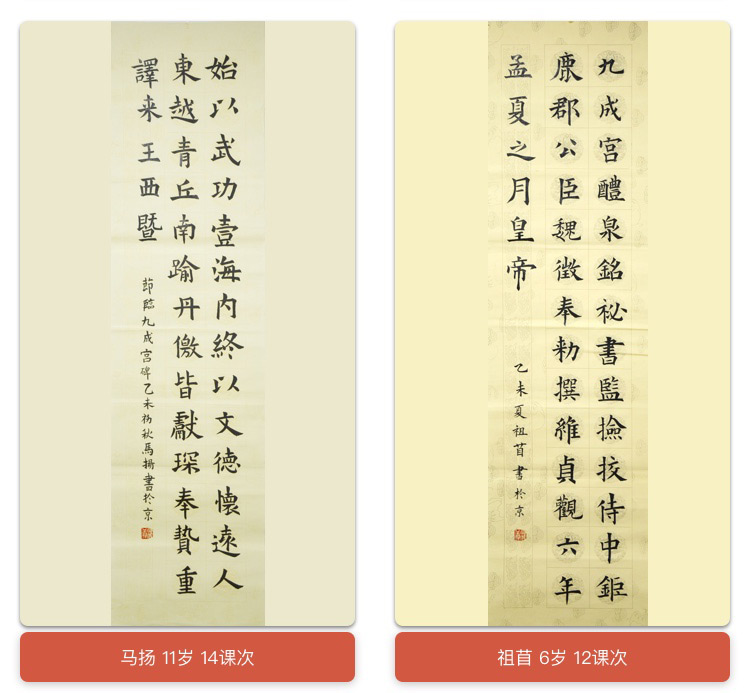 始以武功壹海内終以文德懷遠人
東越青丘南踰丹儌皆獻琛奉贄重
譯来王西暨
節臨九成宫碑乙未初秋馬揚書於京
马扬 11岁 14课次
九成宫醴泉銘祕書監撿挍侍中鉅
鹿郡公臣魏徵奉勑撰維貞觀六年
孟夏之月皇帝
乙未夏祖苜書於京
祖苜 6岁 12课次